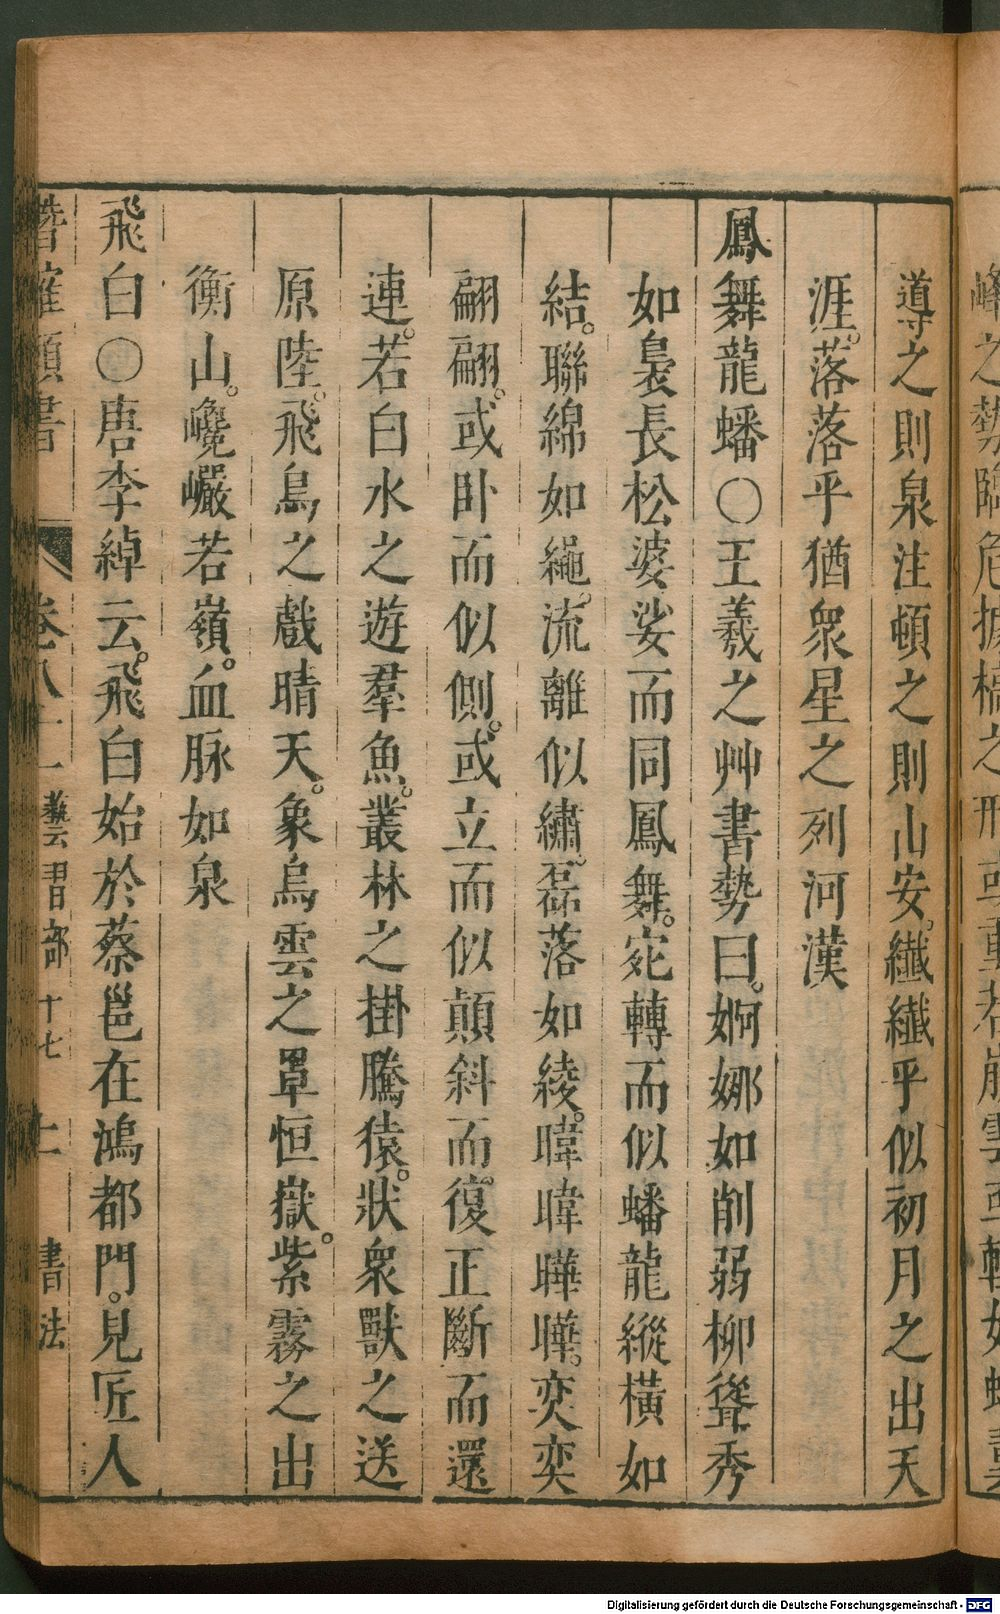 峰之勢臨危據槁之形
導之則泉注頓之則山安。纎纎乎似初月之出天
涯。落落乎猶衆星之列河漢
鳳舞龍蟠○王羲之艸書勢曰。婀娜如削弱柳聳秀
如裊長松婆娑而同鳳舞。宛轉而似蟠龍縱橫如
結。聯綿如繩。流離似繡。磊落如綾。暐暐曄曄。奕奕
翩翩。或卧而似側。或立而似顛斜而復正斷而還
連。若白水之遊羣魚。叢林之掛騰猿。狀衆獸之送
原陸。飛鳥之戲晴天。象烏雲之罩恒嶽。紫霧之出
衡山。巉巖若嶺。血脉如泉
飛白○唐李綽云。飛白始於蔡邕在鴻都門。見匠人
潛確類書 卷八十二藝習部十七 書法
Digitalisierung gefördert durch die Deutsche Forschungsgemeinschaft - DFG